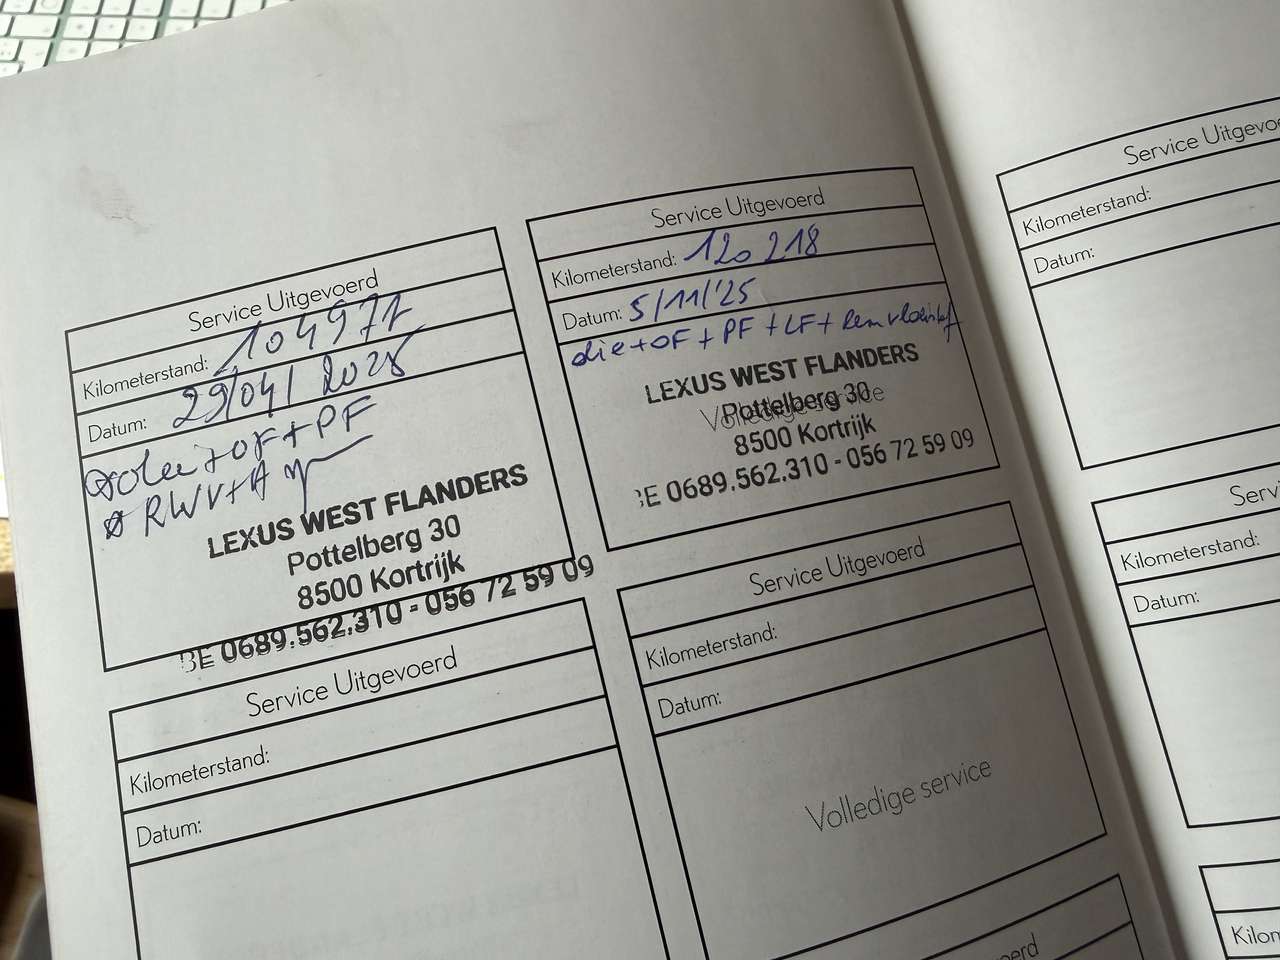 Service Uitgevoerd
Kilometerstand: 104977
Datum: 29/04/2025
olie + OF + PF
RWV + A
LEXUS WEST FLANDERS
Pottelberg 30
8500 Kortrijk
BE 0689.562.310 - 056 72 59 09
Service Uitgevoerd
Kilometerstand: 120 218
Datum: 5/11/'25
olie + OF + PF + LF + Remvloeistof
LEXUS WEST FLANDERS
Volledige service
Pottelberg 30
8500 Kortrijk
BE 0689.562.310 - 056 72 59 09
Service Uitgevoerd
Kilometerstand:
Datum:
Service Uitgevoerd
Kilometerstand:
Datum:
Volledige service
Service Uitgevo
Kilometerstand:
Datum:
Servi
Kilometerstand:
Datum:
oerd
Kilom